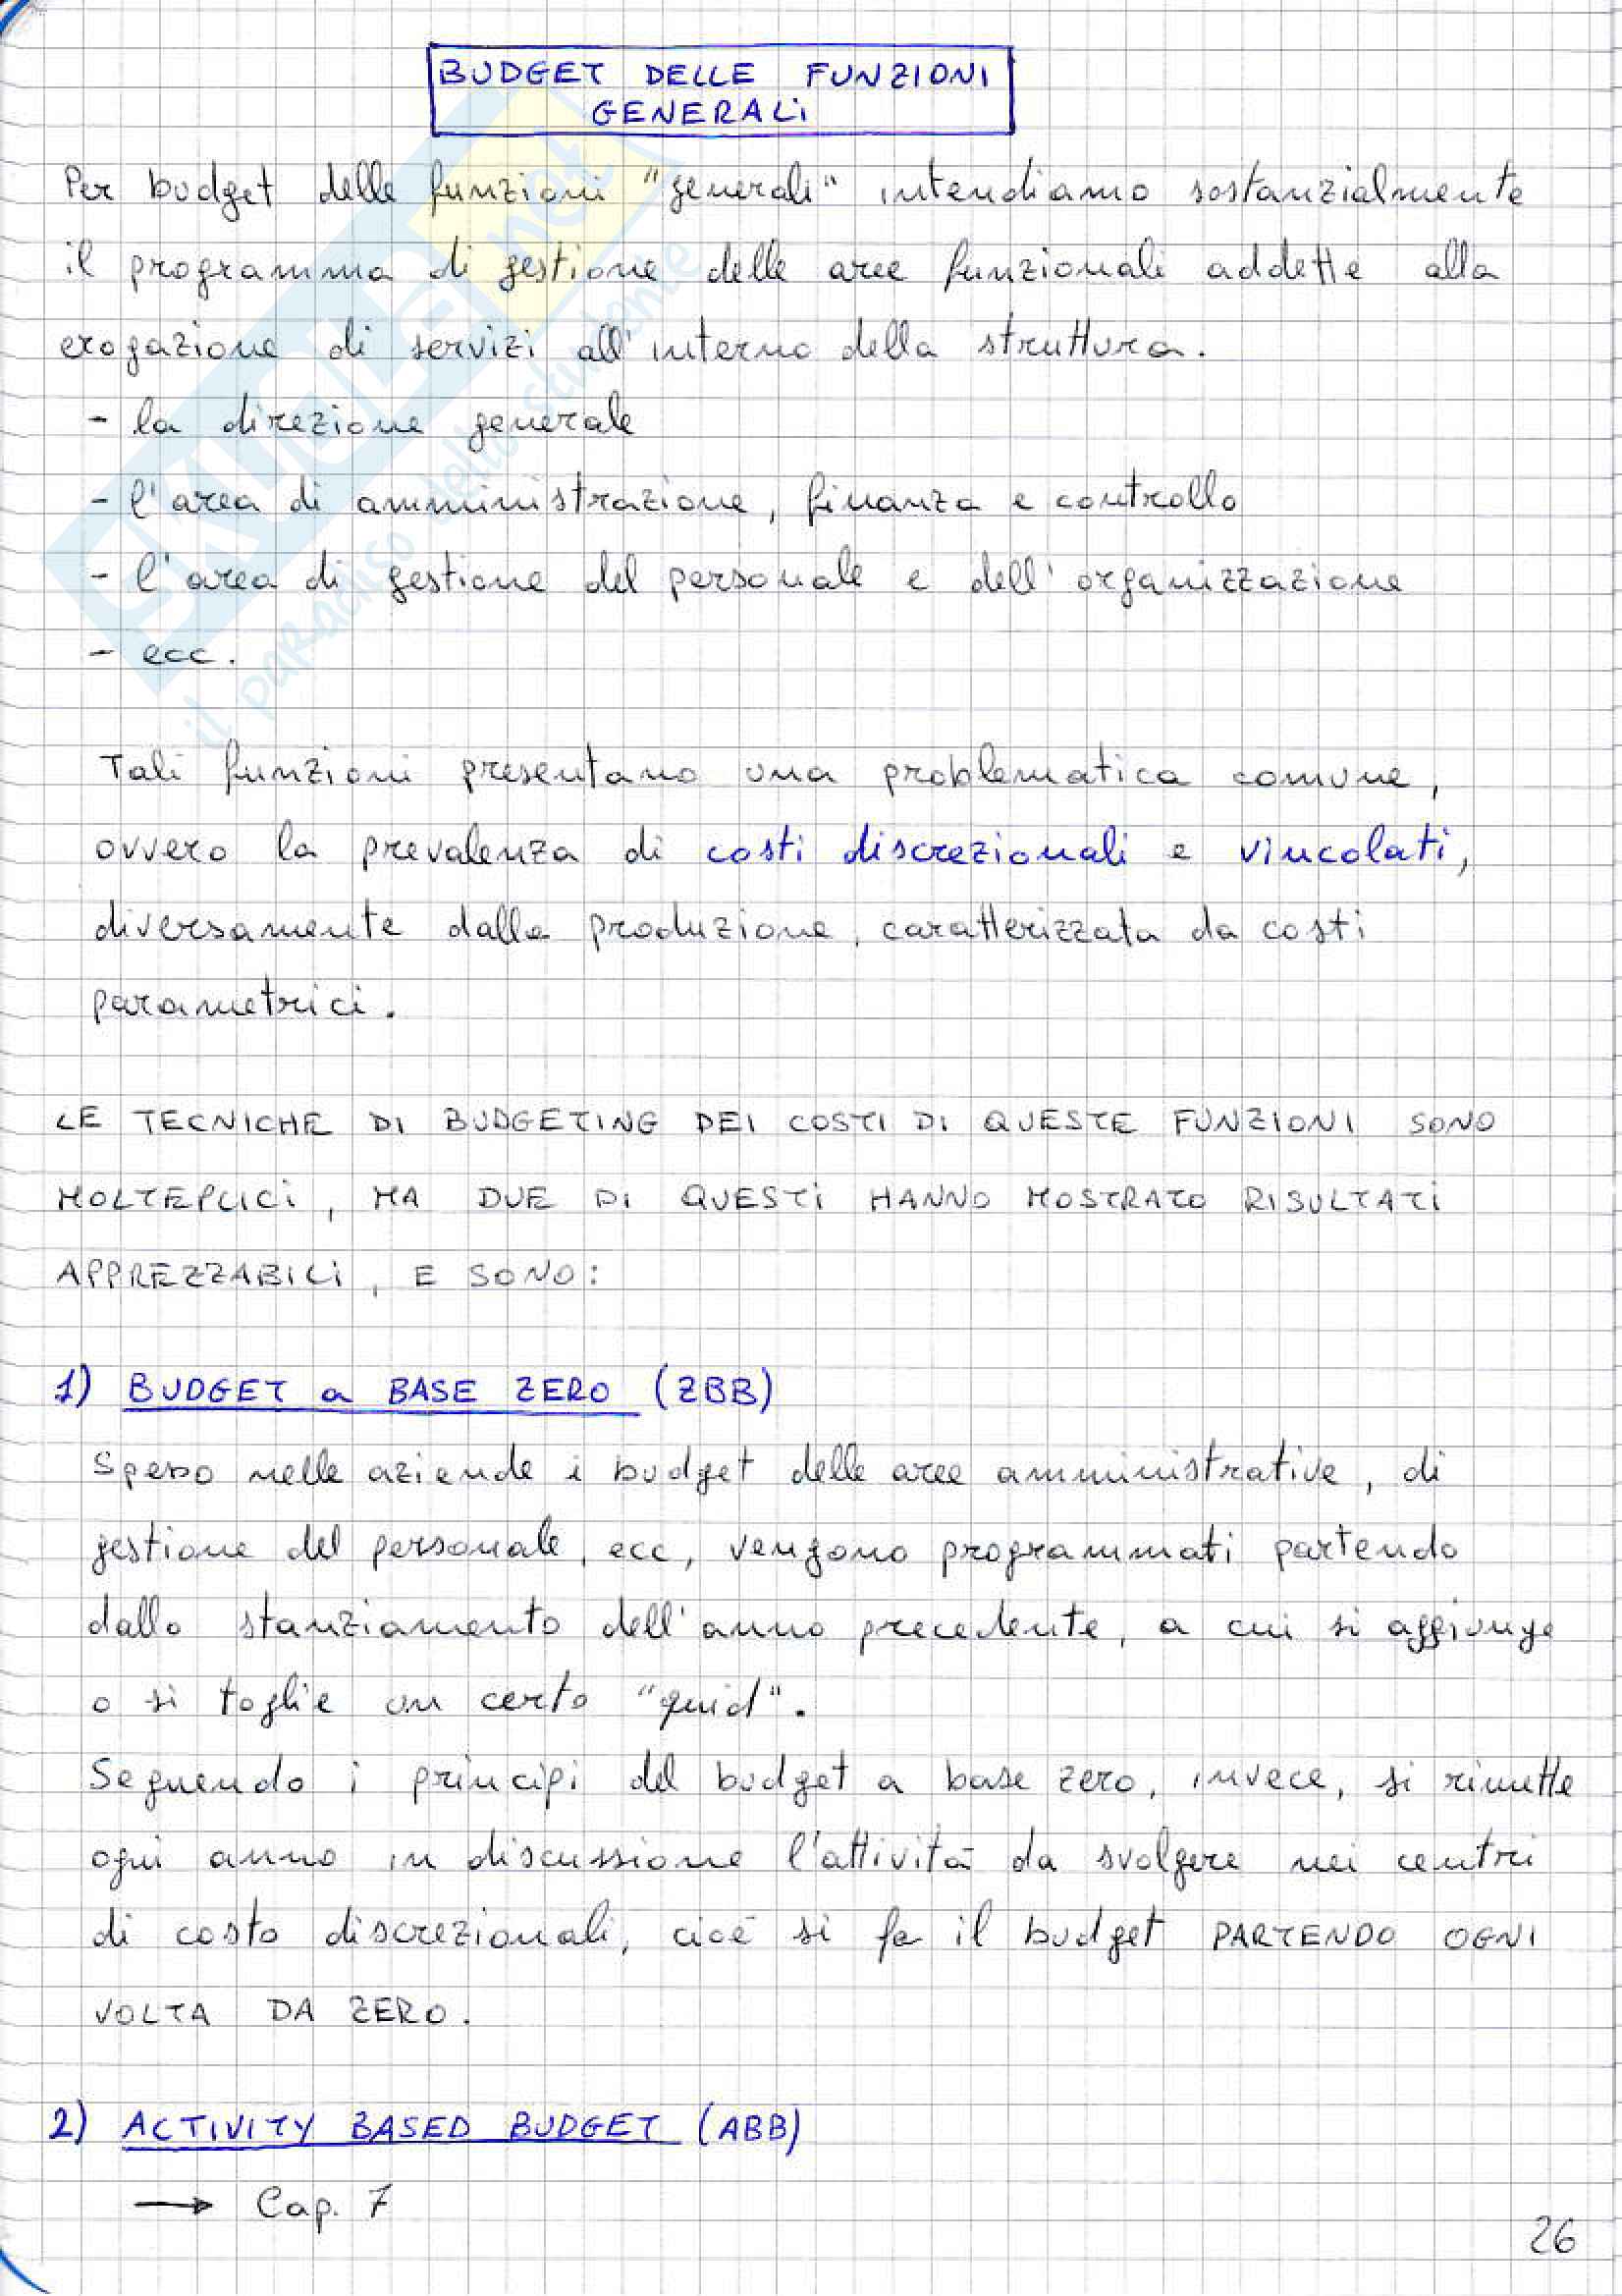 BUDGET DELLE FUNZIONI
GENERALI
Per budget delle funzioni "generali" intendiamo sostanzialmente
il programma di gestione delle aree funzionali addette alla
erogazione di servizi all'interno della struttura.
- la direzione generale
- l'area di amministrazione, finanza e controllo
- l'area di gestione del personale e dell'organizzazione
- ecc.
Tali funzioni presentano una problematica comune,
ovvero la prevalenza di costi discrezionali e vincolati,
diversamente dalla produzione, caratterizzata da costi
parametrici.
LE TECNICHE DI BUDGETING DEI COSTI DI QUESTE FUNZIONI SONO
MOLTEPLICI, MA DUE DI QUESTI HANNO MOSTRATO RISULTATI
APPREZZABILI, E SONO:
1) BUDGET a BASE ZERO (ZBB)
Spesso nelle aziende i budget delle aree amministrative, di
gestione del personale, ecc, vengono programmati partendo
dallo stanziamento dell'anno precedente, a cui si aggiunge
o si toglie un certo "quid".
Seguendo i principi del budget a base zero, invece, si rimette
ogni anno in discussione l'attività da svolgere nei centri
di costo discrezionali, cioè si fa il budget PARTENDO OGNI
VOLTA DA ZERO.
2) ACTIVITY BASED BUDGET (ABB)
→ Cap. 7
26
SKUOLA.net
il paradiso dello studente